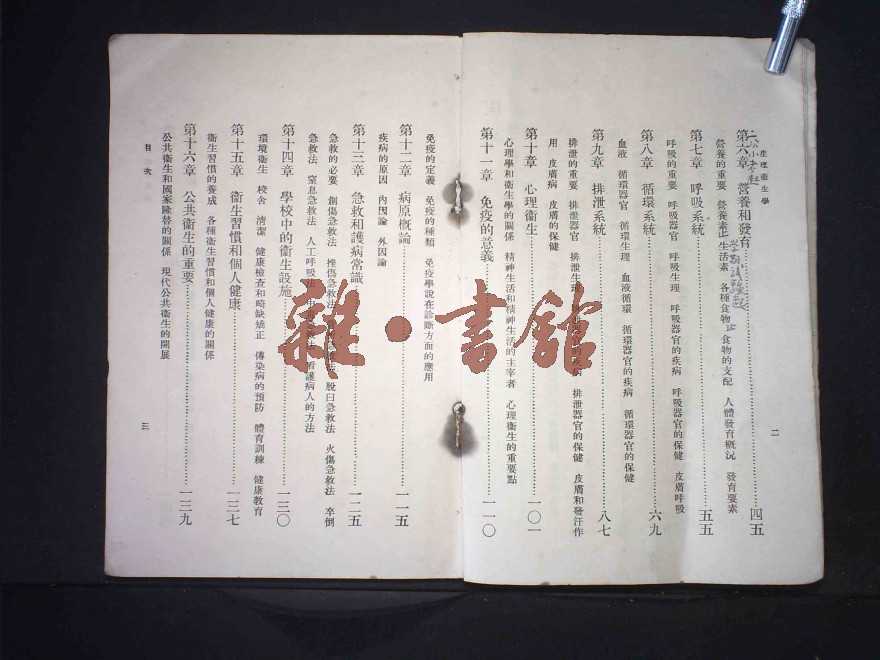 生理衛生學
二
第六章 營養和發育……四五
營養的重要 營養素 生活素 各種食物 食物的支配 人體發育概況 發育要素
第七章 呼吸系統……五五
呼吸的重要 呼吸器官 呼吸生理 呼吸器官的疾病 呼吸器官的保健 皮膚呼吸
第八章 循環系統……六九
血液 循環器官 循環生理 血液循環 循環器官的疾病 循環器官的保健
第九章 排泄系統……八七
排泄的重要 排泄器官 排泄生理 排泄器官的疾病 排泄器官的保健 皮膚和發汗作
用 皮膚病 皮膚的保健
第十章 心理衛生……一〇一
心理學和衛生學的關係 精神生活和精神生活的主宰者 心理衛生的重要點
第十一章 免疫的意義……一一〇
免疫的定義 免疫的種類 免疫學說在診斷方面的應用
第十二章 病原概論……一一五
疾病的原因 內因論 外因論
第十三章 急救和護病常識……一二五
急救的必要 創傷急救法 挫傷急救法 脫臼急救法 火傷急救法 卒倒
急救法 窒息急救法 人工呼吸法 看護病人的方法
第十四章 學校中的衛生設施……一三〇
環境衛生 校舍 清潔 健康檢查和畸缺矯正 傳染病的預防 體育訓練 健康教育
第十五章 衛生習慣和個人健康……一三七
衛生習慣的養成 各種衛生習慣和個人健康的關係
第十六章 公共衛生的重要……一三九
公共衛生和國家隆替的關係 現代公共衛生的開展
目次
三
雜·書館